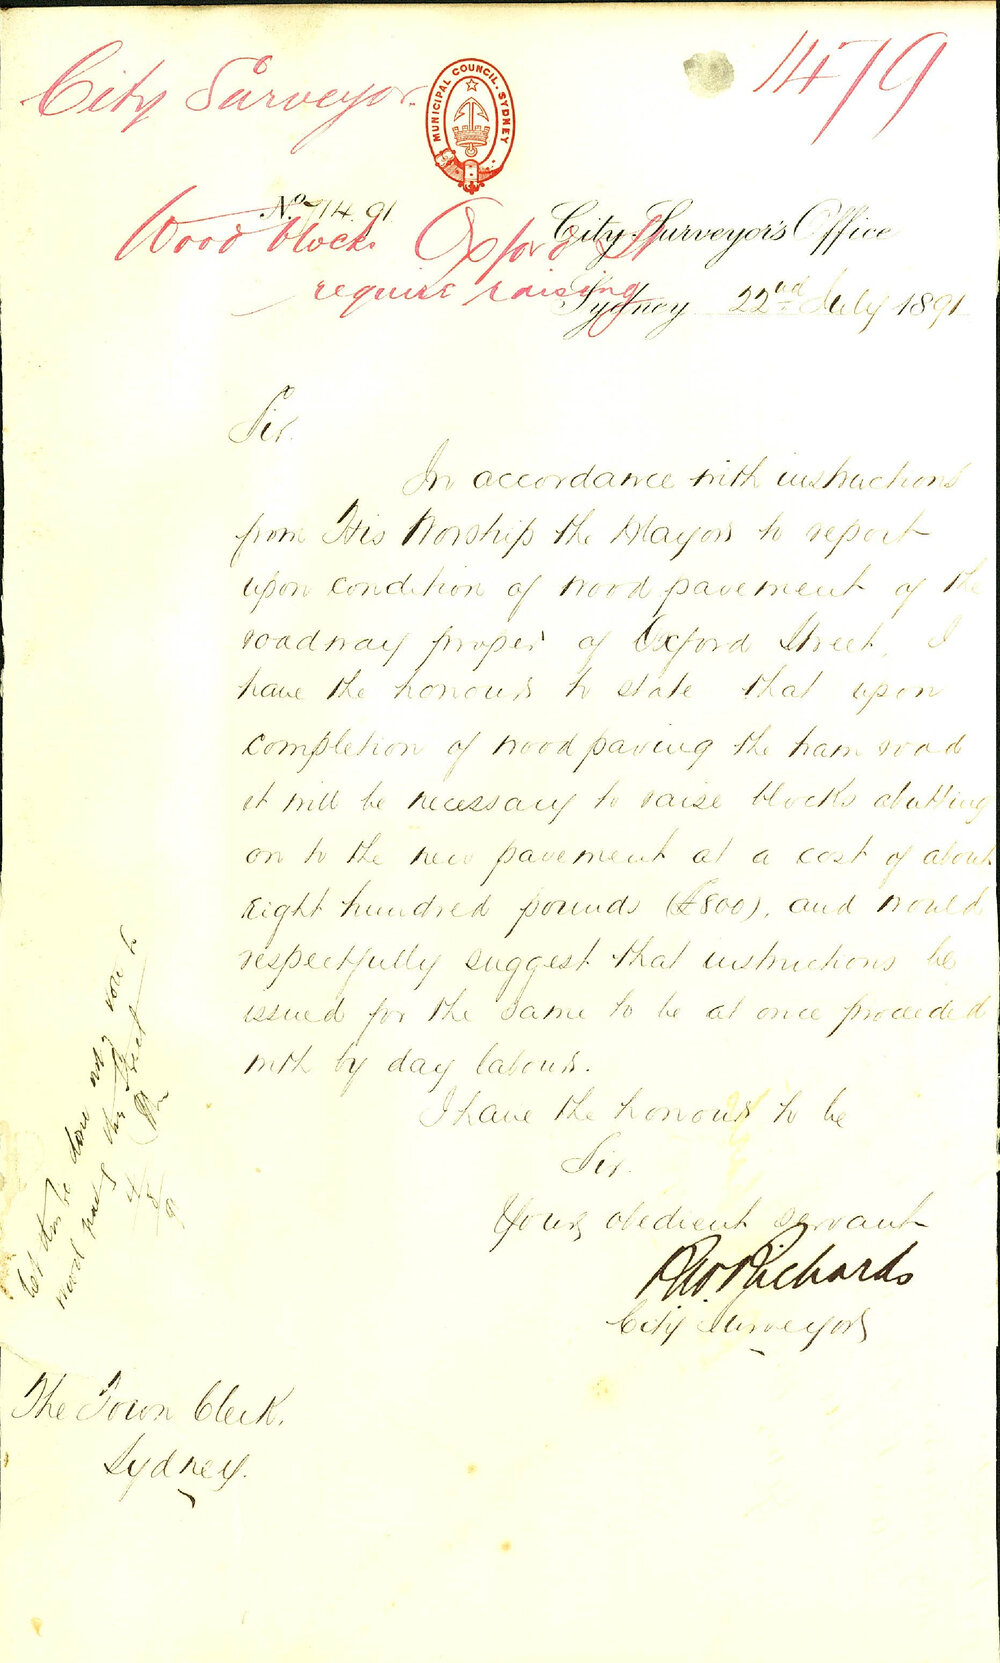 City Surveyor.
1479
MUNICIPAL COUNCIL. SYDNEY
No. 714.91
City Surveyor's Office
Wood blocks Oxford St
require raising
Sydney 22nd July 1891
Sir.
In accordance with instructions
from His Worship the Mayor to report
upon condition of wood pavement of the
roadway proper of Oxford Street, I
have the honour to state that upon
completion of wood paving the tram road
it will be necessary to raise blocks abutting
on to the new pavement at a cost of about
eight hundred pounds (£800), and would
respectfully suggest that instructions be
issued for the same to be at once proceeded
with by day labour.
I have the honour to be
Sir.
Your obedient servant
R.W. Richards
City Surveyor
Let this be done
wood this Street
4/8/91
The Town Clerk.
Sydney.